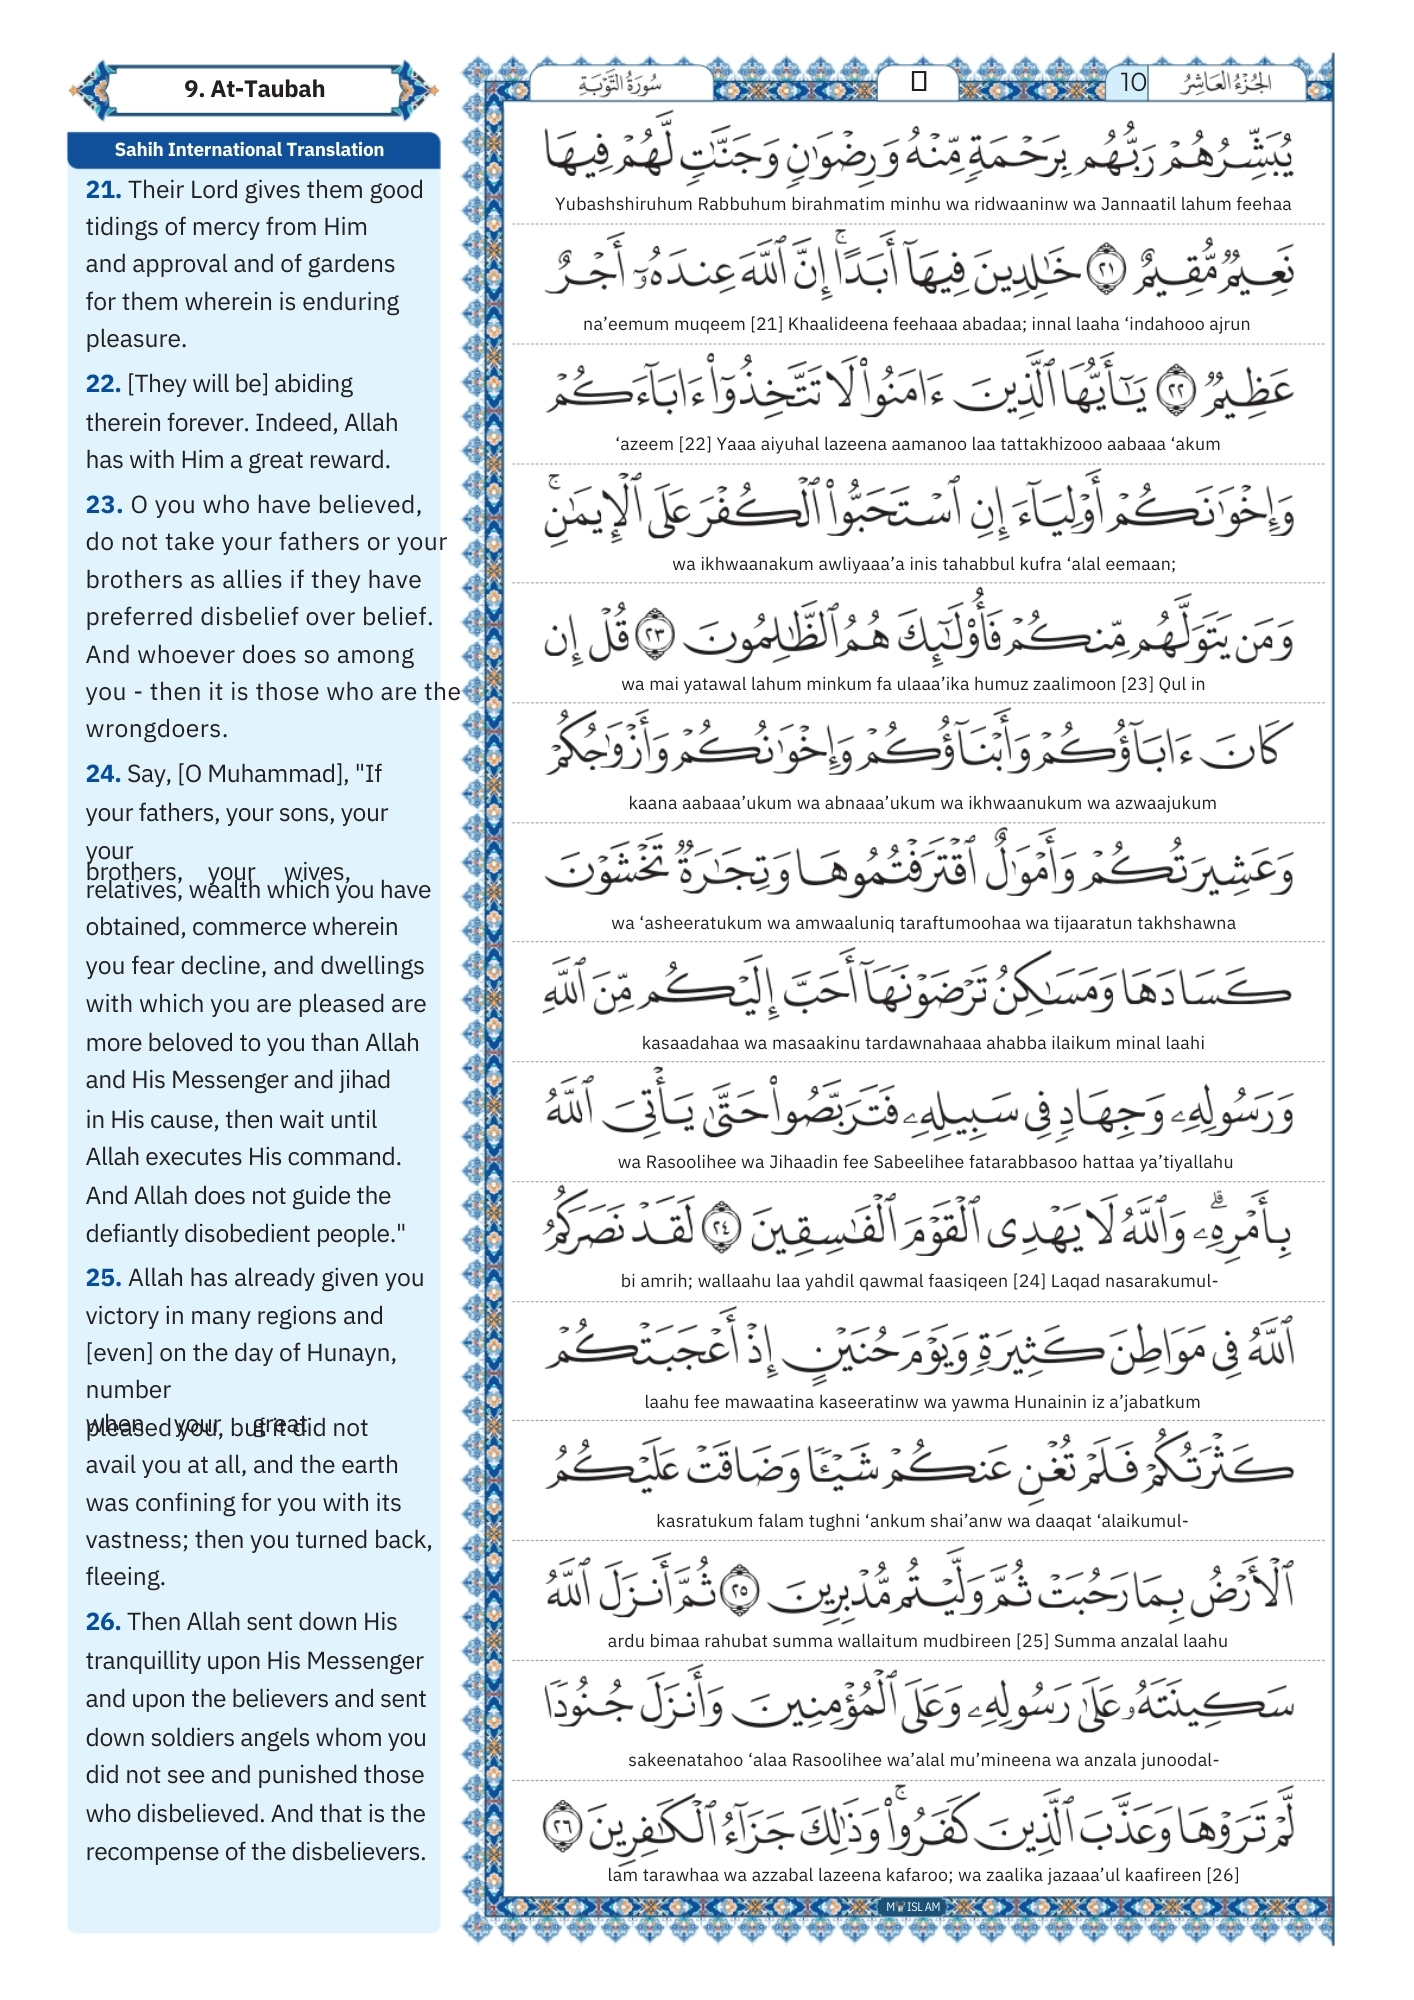 9. At-Taubah
Sahih International Translation
21. Their Lord gives them good
tidings of mercy from Him
and approval and of gardens
for them wherein is enduring
pleasure.
22. [They will be] abiding
therein forever. Indeed, Allah
has with Him a great reward.
23. O you who have believed,
do not take your fathers or your
brothers as allies if they have
preferred disbelief over belief.
And whoever does so among
you - then it is those who are the
wrongdoers.
24. Say, [O Muhammad], "If
your fathers, your sons, your
your
brothers, your wives,
relatives, wealth which you have
obtained, commerce wherein
you fear decline, and dwellings
with which you are pleased are
more beloved to you than Allah
and His Messenger and jihad
in His cause, then wait until
Allah executes His command.
And Allah does not guide the
defiantly disobedient people."
25. Allah has already given you
victory in many regions and
[even] on the day of Hunayn,
number
when your great
pleased you, but it did not
avail you at all, and the earth
was confining for you with its
vastness; then you turned back,
fleeing.
26. Then Allah sent down His
tranquillity upon His Messenger
and upon the believers and sent
down soldiers angels whom you
did not see and punished those
who disbelieved. And that is the
recompense of the disbelievers.
سُورَةُ التَّوْبَةِ
10 الجُزْءُ العَاشِرُ
يُبَشِّرُهُمْ رَبُّهُم بِرَحْمَةٍ مِّنْهُ وَرِضْوَٰنٍ وَجَنَّـٰتٍ لَّهُمْ فِيهَا
Yubashshiruhum Rabbuhum birahmatim minhu wa ridwaaninw wa Jannaatil lahum feehaa
نَعِيمٌ مُّقِيمٌ ٢١ خَـٰلِدِينَ فِيهَآ أَبَدًا ۚ إِنَّ ٱللَّهَ عِندَهُۥٓ أَجْرٌ
na’eemum muqeem [21] Khaalideena feehaaa abadaa; innal laaha ‘indahooo ajrun
عَظِيمٌ ٢٢ يَـٰٓأَيُّهَا ٱلَّذِينَ ءَامَنُوا۟ لَا تَتَّخِذُوٓا۟ ءَابَآءَكُمْ
‘azeem [22] Yaaa aiyuhal lazeena aamanoo laa tattakhizooo aabaaa ‘akum
وَإِخْوَٰنَكُمْ أَوْلِيَآءَ إِنِ ٱسْتَحَبُّوا۟ ٱلْكُفْرَ عَلَى ٱلْإِيمَـٰنِ ۚ
wa ikhwaanakum awliyaaa’a inis tahabbul kufra ‘alal eemaan;
وَمَن يَتَوَلَّهُم مِّنكُمْ فَأُو۟لَـٰٓئِكَ هُمُ ٱلظَّـٰلِمُونَ ٢٣ قُلْ إِن
wa mai yatawal lahum minkum fa ulaaa’ika humuz zaalimoon [23] Qul in
كَانَ ءَابَآؤُكُمْ وَأَبْنَآؤُكُمْ وَإِخْوَٰنُكُمْ وَأَزْوَٰجُكُمْ
kaana aabaaa’ukum wa abnaaa’ukum wa ikhwaanukum wa azwaajukum
وَعَشِيرَتُكُمْ وَأَمْوَٰلٌ ٱقْتَرَفْتُمُوهَا وَتِجَـٰرَةٌ تَخْشَوْنَ
wa ‘asheeratukum wa amwaaluniq taraftumoohaa wa tijaaratun takhshawna
كَسَادَهَا وَمَسَـٰكِنُ تَرْضَوْنَهَآ أَحَبَّ إِلَيْكُم مِّنَ ٱللَّهِ
kasaadahaa wa masaakinu tardawnahaaa ahabba ilaikum minal laahi
وَرَسُولِهِۦ وَجِهَادٍ فِى سَبِيلِهِۦ فَتَرَبَّصُوا۟ حَتَّىٰ يَأْتِىَ ٱللَّهُ
wa Rasoolihee wa Jihaadin fee Sabeelihee fatarabbasoo hattaa ya’tiyallahu
بِأَمْرِهِۦ ۗ وَٱللَّهُ لَا يَهْدِى ٱلْقَوْمَ ٱلْفَـٰسِقِينَ ٢٤ لَقَدْ نَصَرَكُمُ
bi amrih; wallaahu laa yahdil qawmal faasiqeen [24] Laqad nasarakumul-
ٱللَّهُ فِى مَوَاطِنَ كَثِيرَةٍ وَيَوْمَ حُنَيْنٍ إِذْ أَعْجَبَتْكُمْ
laahu fee mawaatina kaseeratinw wa yawma Hunainin iz a’jabatkum
كَثْرَتُكُمْ فَلَمْ تُغْنِ عَنكُمْ شَيْـًٔا وَضَاقَتْ عَلَيْكُمُ
kasratukum falam tughni ‘ankum shai’anw wa daaqat ‘alaikumul-
ٱلْأَرْضُ بِمَا رَحُبَتْ ثُمَّ وَلَّيْتُم مُّدْبِرِينَ ٢٥ ثُمَّ أَنزَلَ ٱللَّهُ
ardu bimaa rahubat summa wallaitum mudbireen [25] Summa anzalal laahu
سَكِينَتَهُۥ عَلَىٰ رَسُولِهِۦ وَعَلَى ٱلْمُؤْمِنِينَ وَأَنزَلَ جُنُودًا
sakeenatahoo ‘alaa Rasoolihee wa’alal mu’mineena wa anzala junoodal-
لَّمْ تَرَوْهَا وَعَذَّبَ ٱلَّذِينَ كَفَرُوا۟ ۚ وَذَٰلِكَ جَزَآءُ ٱلْكَـٰفِرِينَ ٢٦
lam tarawhaa wa azzabal lazeena kafaroo; wa zaalika jazaaa’ul kaafireen [26]
MY ISLAM